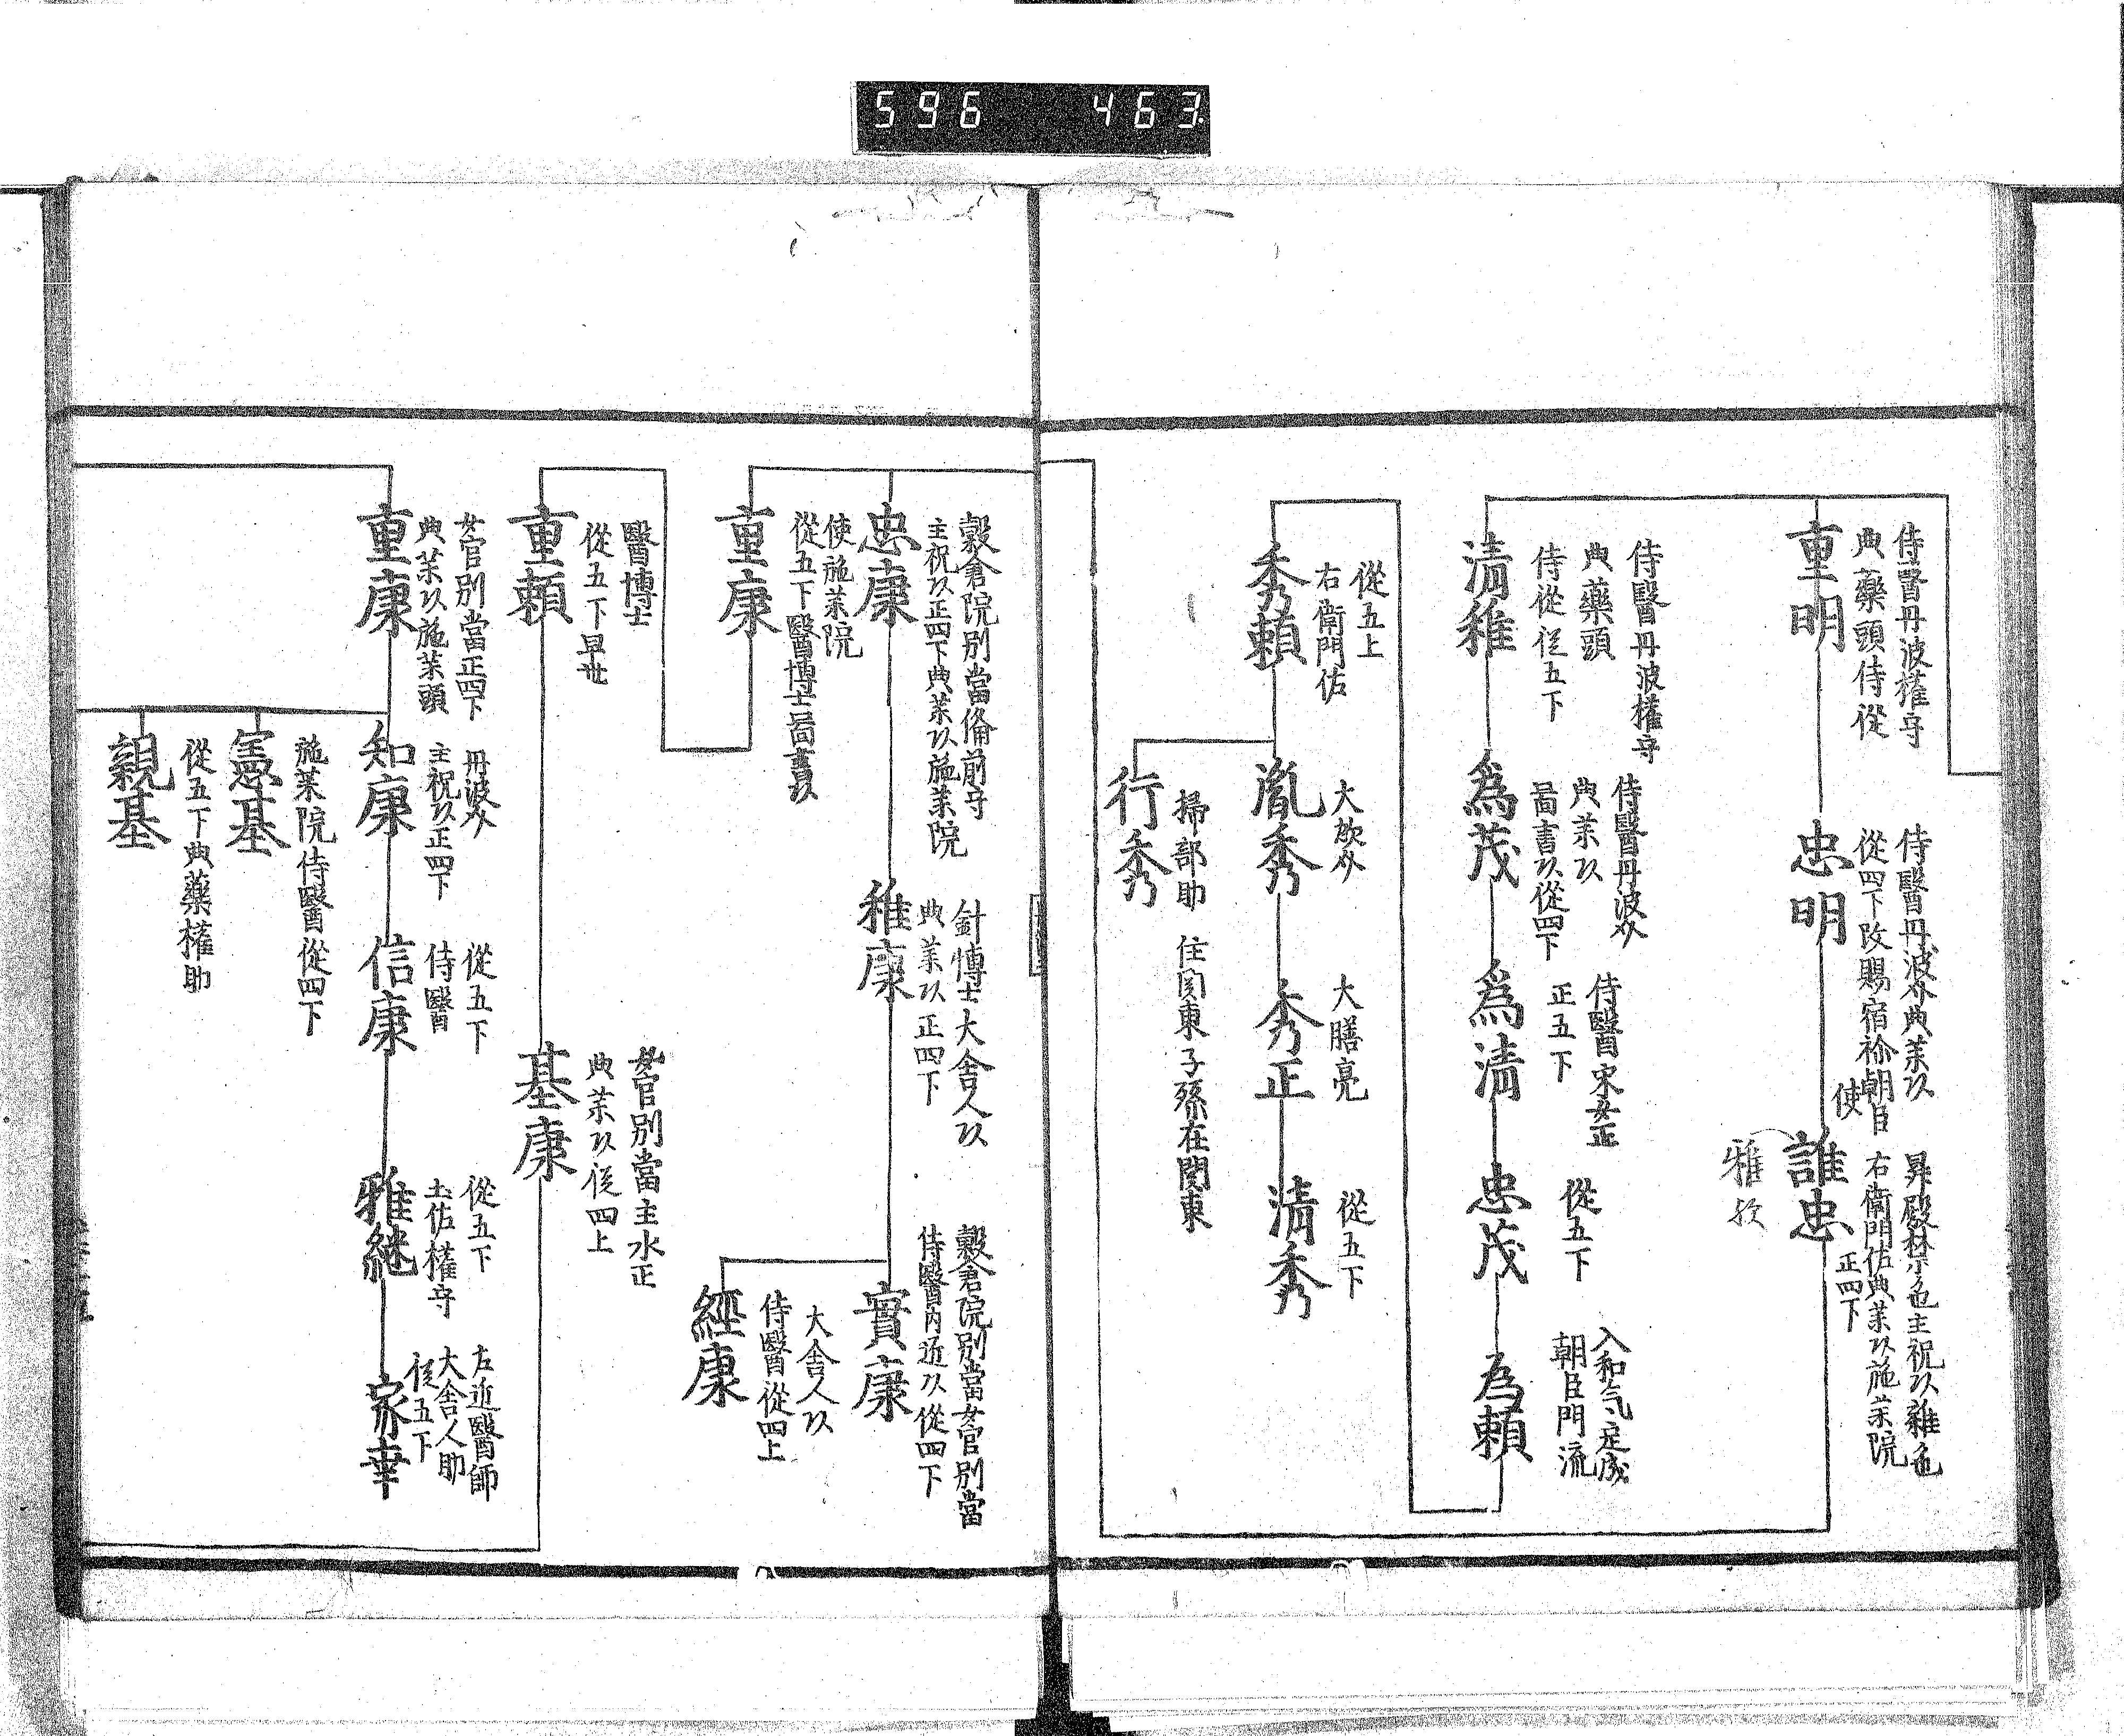 596 463
侍醫丹波權守
典藥頭侍從
重明
侍醫丹波介典茱以
從四下改賜宿祢朝臣
使
忠明
昇殿禁色主祝以雜色
右衛門佐典茱以施茱院
正四下
誰忠
雅歟
侍醫丹波權守
典藥頭
侍從従五下
清稚
侍醫丹波介
典茱以
啚書以從四下
爲茂
侍醫宋女正
正五下
爲清
從五下
忠茂
入和气定成
朝臣門流
為頼
從五上
右衛門佐
秀頼
大欤介
胤秀
大膳亮
秀正
從五下
清秀
掃部助 住関東子孫在関東
行秀
穀倉院別當俻前守
主祝以正四下典茱以施茱院
忠康
針博士大舎人以
典茱以正四下
稚康
穀倉院別當女官別當
侍醫内近以從四下
實康
大舎人以
侍醫從四上
經康
使施茱院
從五下醫博士啚書以
重康
醫博士
從五下早世
重頼
女官別當主水正
典茱以従四上
基康
女官別當正四下
典茱以施茱頭
重康
丹波介
主祝以正四下
知康
從五下
侍醫
信康
從五下
土佐權守
雅継
左近醫師
大舎人助
従五下
家幸
施茱院侍醫從四下
憲基
從五下典藥權助
親基